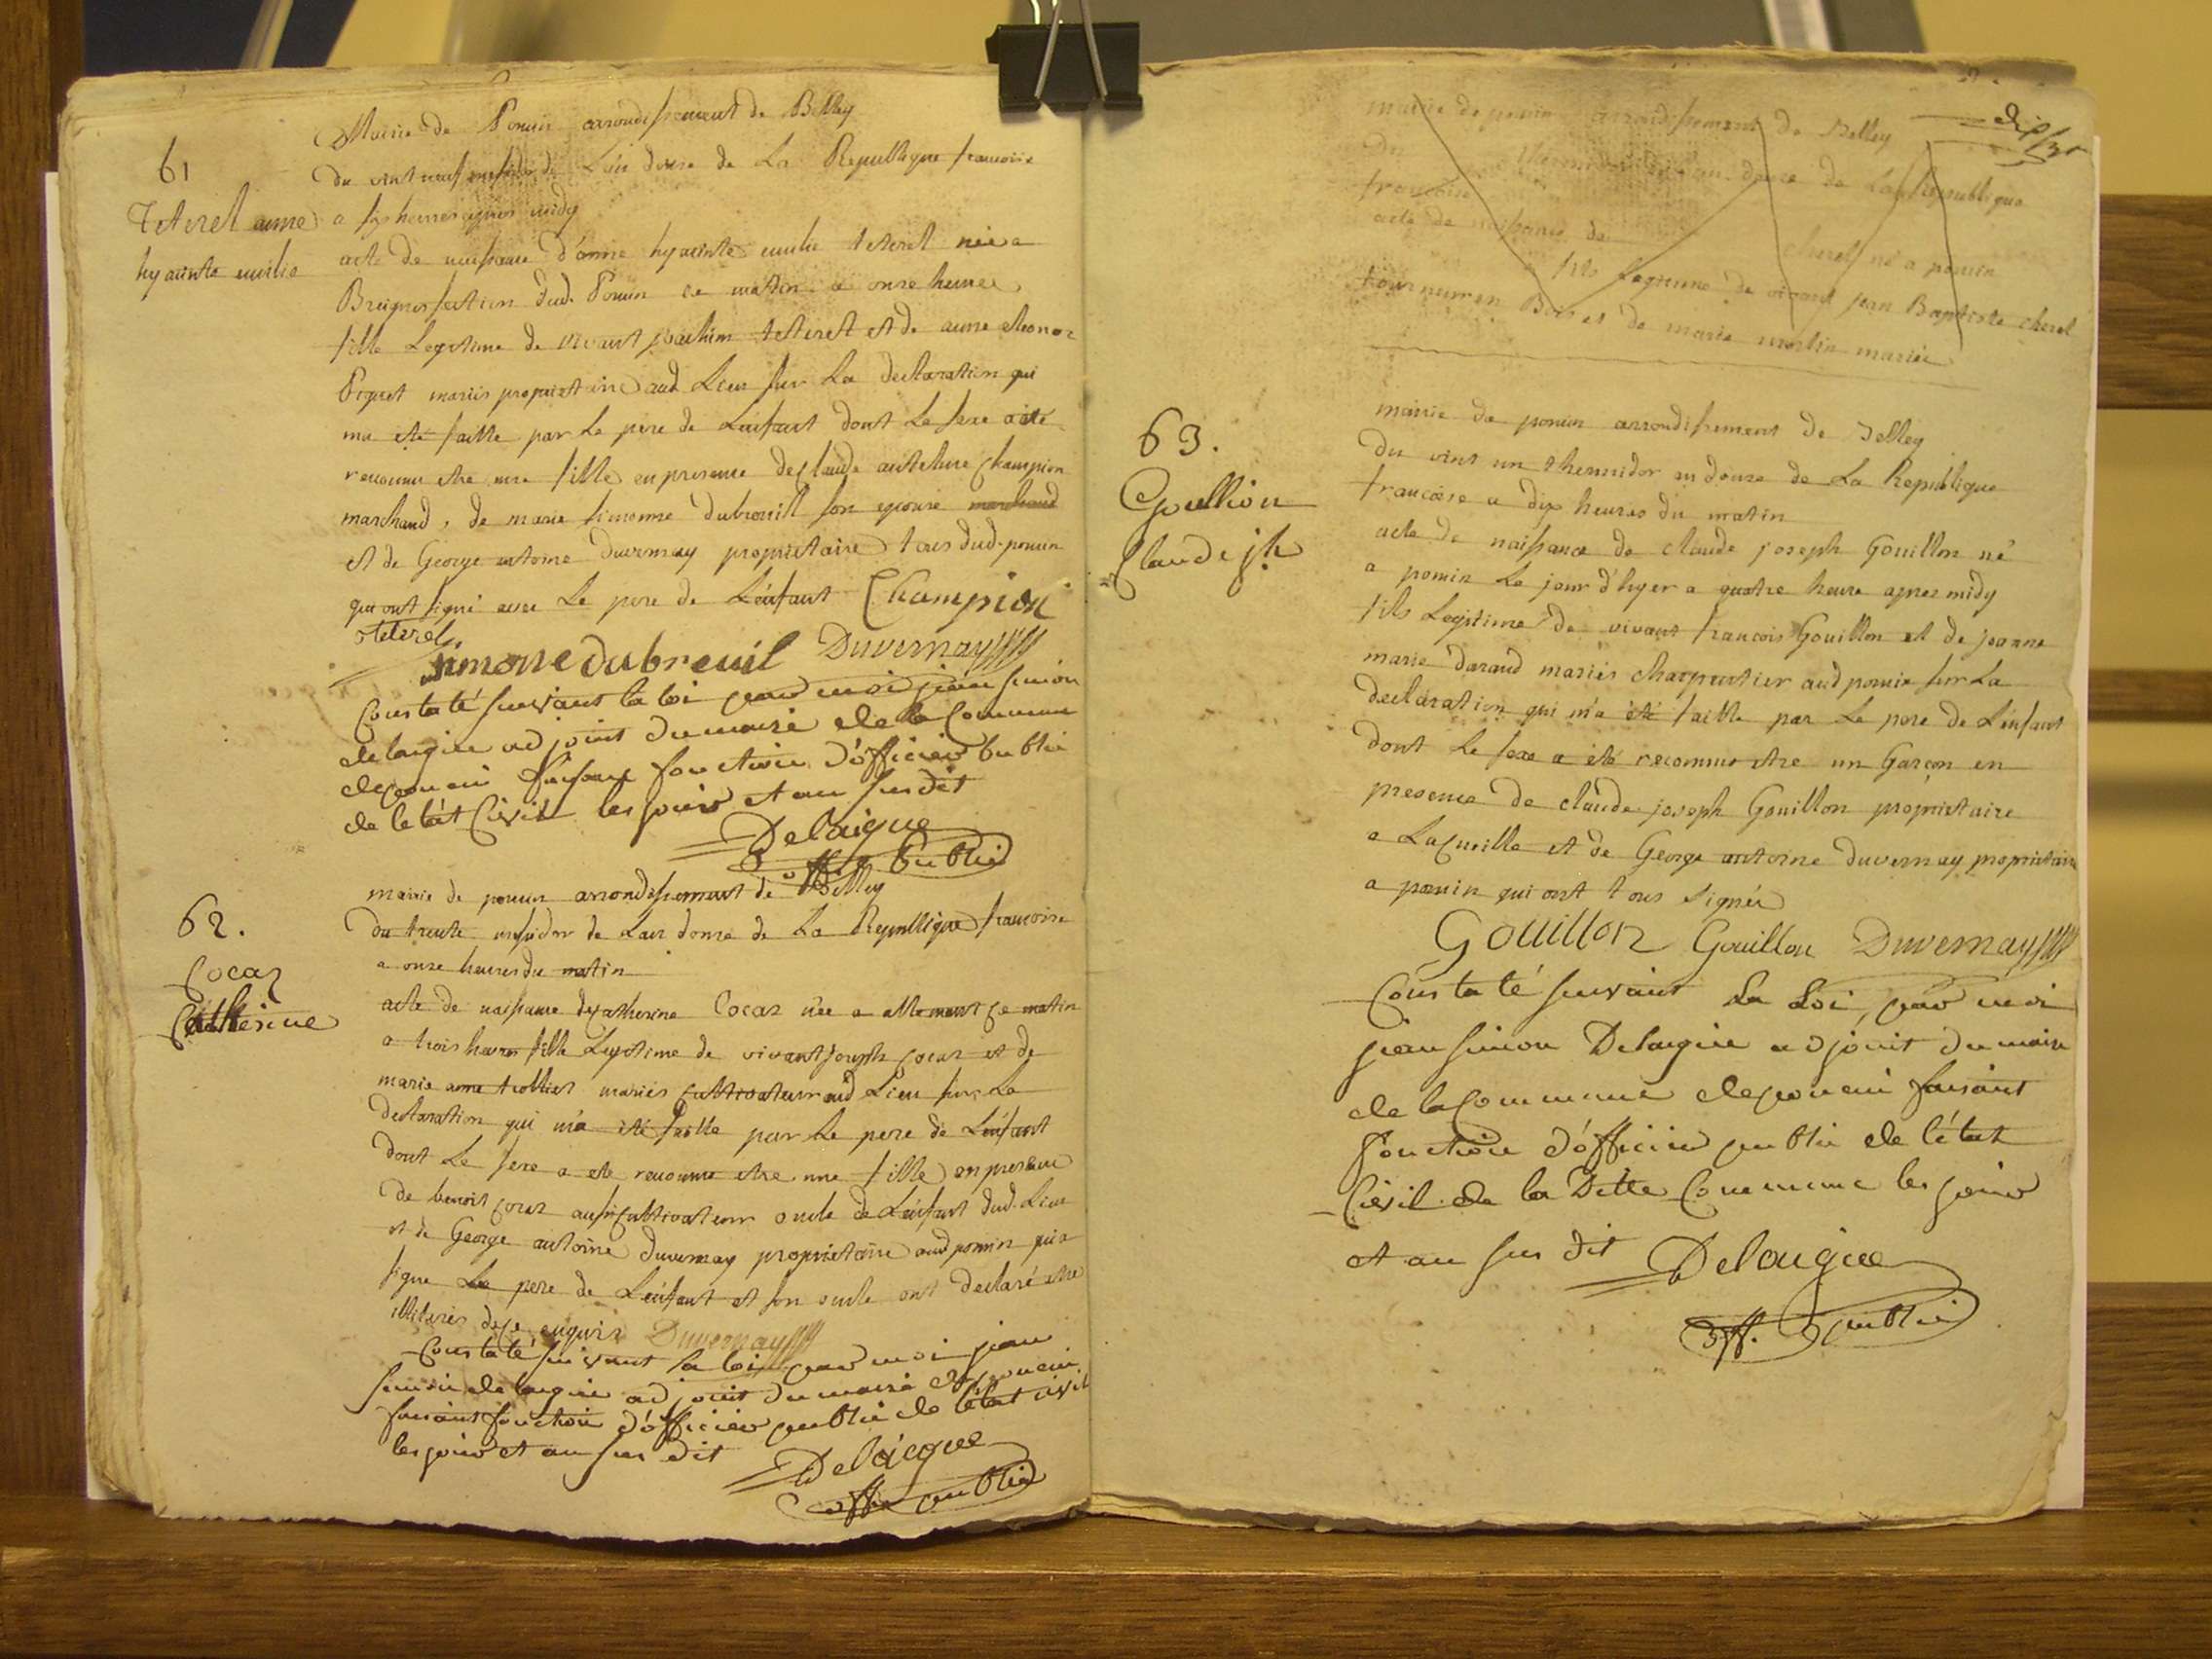 61
teteret anne
hyacinte emilie
Mairie de Poncin arrondissement de Belley
du vint neuf messidor de L'an douze de La Republique francoise
a six heures apres midy
acte de naissance d'anne hyacinte emilie teteret née a
Breignes section dud. Poncin ce matin a onze heures
fille Legitime de vivant joachim teteret et de anne eleonor
Piquet mariés proprietaire aud Lieu sur La declaration qui
ma eté faitte par Le pere de L'enfant dont Le sexe a été
reconnu etre une fille en presence de Claude antelme Champion
marchand, de marie simonne dubreuill son epouse marchand
et de George antoine Duvernay proprietaire tous dud. poncin
qui ont signé avec Le pere de L'enfant Champion
teteret
simone dubreuil Duvernay
Constaté suivant la loi par moi jean simon
delaigue adjoint du maire de la Commune
de poncin faisant fonction d'officier public
de letat Civil les jour et an susdit
Delaigue
off. public
62.
Cocaz
Catherine
mairie de poncin arrondissement de Belley
du trente messidor de L'an douze de La Republique francoise
a onze heures du matin
acte de naissance de Catherine Cocaz née a allement Ce matin
a trois heures fille Legitime de vivant joseph Cocaz et de
marie anne trolliet mariés Cultivateur aud Lieu sur La
declaration qui m'a été faitte par Le pere de L'enfant
dont Le sexe a eté reconnu etre une fille en presence
de benoit Cocaz aussi Cultivateur oncle de L'enfant dud. Lieu
et de George antoine Duvernay proprietaire aud poncin qui a
signe Le pere de L'enfant et son oncle ont declaré etre
illiterés de Ce enquis Duvernay
Constaté suivant la loi par moi jean
simon delaigue adjoint du maire de poncin
faisant fonction d'officier public de l'état civil
les jour et an sus dit
Delaigue
off. public
mairie de poncin arrondissement de Belley
du thermidor an douze de La Republique
francoise
acte de naissance de cherel né a poncin
fils Legitime de vivant jean Baptiste cherel
tourneur en Bois et de marie merlin mariés
63.
Gouillon
Claude jh
mairie de poncin arrondissement de Belley
Du vint un thermidor an douze de La Republique
francoise a dix heures du matin
acte de naissance de claude joseph Gouillon né
a poncin Le jour d'hyer a quatre heure apres midy
fils Legitime de vivant francois Gouillon et de jeanne
marie darand mariés charpentier aud poncin sur La
declaration qui m'a été faitte par Le pere de L'enfant
dont Le sexe a été reconnu etre un Garçon en
presence de claude joseph Gouillon proprietaire
a La Cueille et de George antoine duvernay proprietaire
a poncin qui ont tous signés
Gouillon Gouillon Duvernay
Constaté suivant La Loi, par moi
jean simon Delaigue adjoint du maire
de la Commune de poncin faisant
fonction d'officier public de l'état
Civil de la Ditte Commune les jour
et an sus dit Delaigue
off. public